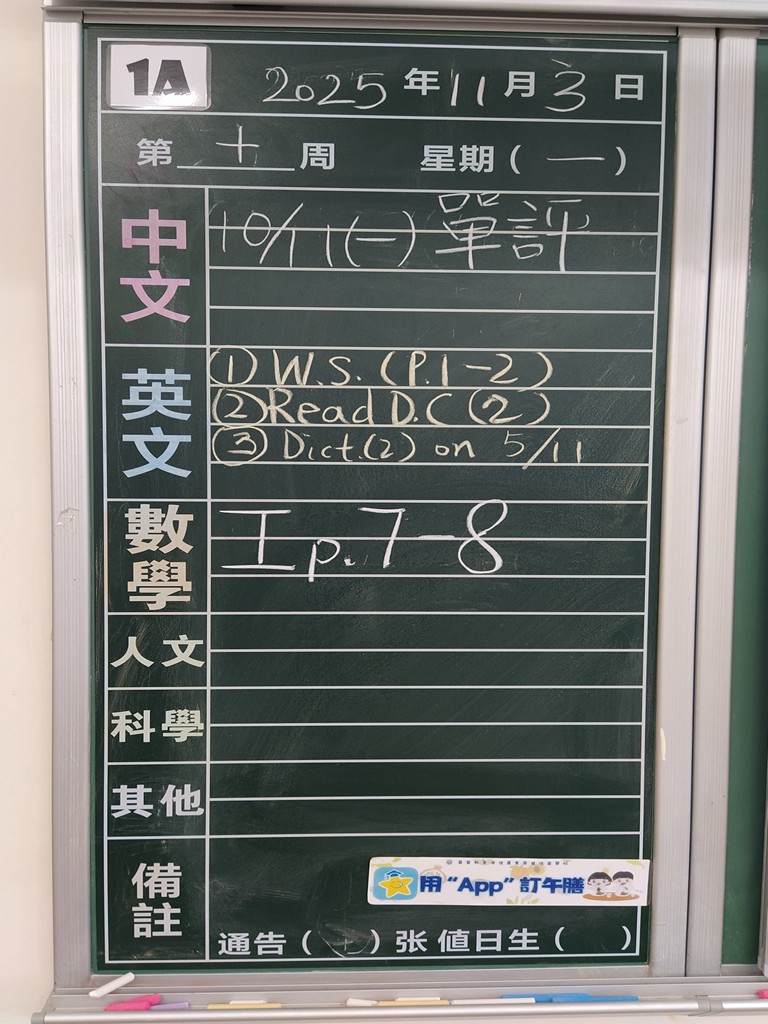 1A 2025年11月3日
第 十 周 星期(一)
中文 10/11(一) 單評
英文 ① W.S. (P.1-2)
② Read D.C (2)
③ Dict.(2) on 5/11
數學 工 p.7-8
人文
科學
其他
備註
用“App”訂午膳
通告( )张 值日生( )